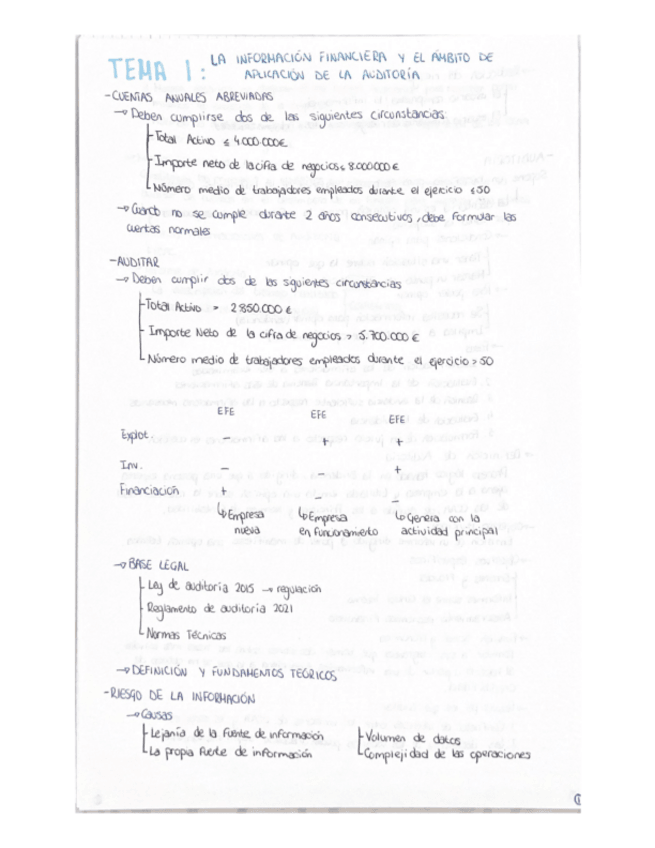 TEMA 1: LA INFORMACIÓN FINANCIERA Y EL ÁMBITO DE
APLICACIÓN DE LA AUDITORÍA
- CUENTAS ANUALES ABREVIADAS
→ Deben cumplirse dos de las siguientes circunstancias
Total Activo ≤ 4000.000€
Importe neto de la cifra de negocios ≤ 8.000.000 €
Número medio de trabajadores empleados durante el ejercicio ≤ 50
→ Cuando no se cumple durante 2 años consecutivos, debe formular las
cuentas normales
- AUDITAR
→ Deben cumplir dos de las siguientes circunstancias
Total Activo > 2.850.000 €
Importe Neto de la cifra de negocios > 5.700.000 €
Número medio de trabajadores empleados durante el ejercicio > 50
EFE EFE EFE
Explot. - + +
Inv. - - +
Financiación + - -
↳ Empresa nueva
↳ Empresa en funcionamiento
↳ Genera con la actividad principal
→ BASE LEGAL
Ley de auditoría 2015 → regulación
Reglamento de auditoría 2021
Normas Técnicas
→ DEFINICIÓN Y FUNDAMENTOS TEÓRICOS
- RIESGO DE LA INFORMACIÓN
→ Causas
Lejanía de la fuente de información
La propia fuente de información
Volumen de datos
Complejidad de las operaciones
1